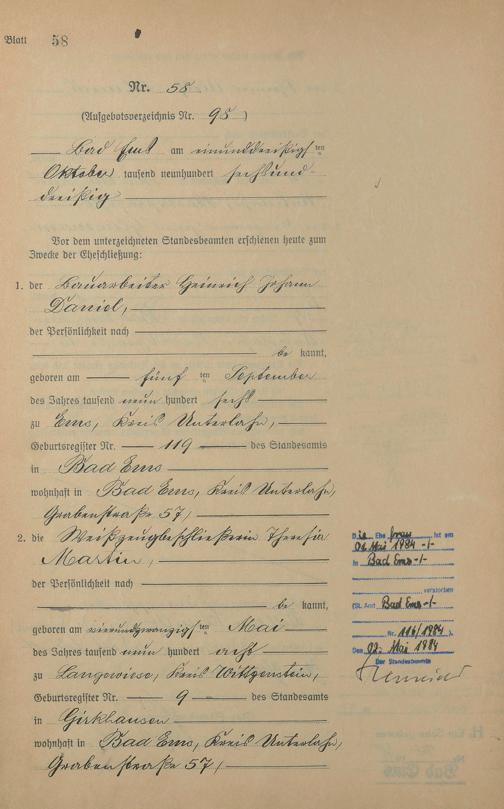 Blatt 58
Nr. 58
(Aufgebotsverzeichnis Nr. 95)
Bad Ems am einunddreißigsten
Oktober tausend neunhundert sechsund-
dreißig
Vor dem unterzeichneten Standesbeamten erschienen heute zum
Zwecke der Eheschließung:
1. der Bauarbeiter Heinrich Johann
Daniel,
der Persönlichkeit nach
be kannt,
geboren am fünften September
des Jahres tausend neun hundert sechs
zu Ems, Kreis Unterlahn,
Geburtsregister Nr. 119 des Standesamts
in Bad Ems
wohnhaft in Bad Ems, Kreis Unterlahn,
Grabenstraße 57,
2. die Weißzeugbeschließerin Theresia
Martin,
der Persönlichkeit nach
be kannt,
geboren am vierundzwanzigsten Mai
des Jahres tausend neun hundert acht
zu Langewiese, Kreis Wittgenstein,
Geburtsregister Nr. 9 des Standesamts
in Girkhausen
wohnhaft in Bad Ems, Kreis Unterlahn,
Grabenstraße 57,
Die Ehefrau ist am
Mai 1984 -/-
in Bad Ems -/-
verstorben
(St. Amt Bad Ems -/-
Nr. 116/1984).
Den 02. Mai 1984
Der Standesbeamte